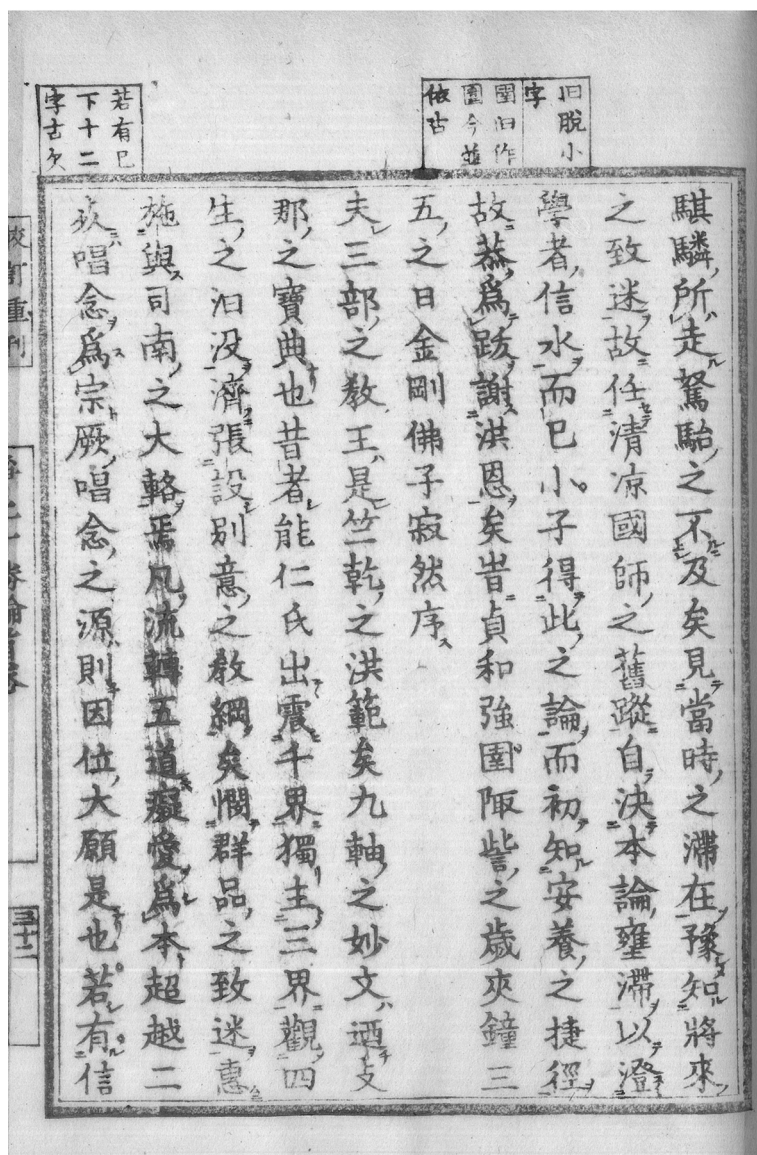 旧脫小
字
圍旧作
園今並
依古
若有已
下十二
字古欠
騏驎所走駑駘之不及矣見當時之滯在豫知將來
之致迷故任清凉國師之舊蹤自決本論壅滯以澄
學者信水而已小子得此之論而初知安養之捷徑
故恭爲跋謝洪恩矣旹貞和強圍陬訾之歲夾鐘三
五之日金剛佛子寂然序
夫三部之敎王是竺乾之洪範矣九軸之妙文迺支
那之寶典也昔者能仁氏出震千界獨主三界觀四
生之汨沒濟張設別意之敎綱矣憫群品之致迷惠
施與司南之大輅焉凡流轉五道癡愛爲本超越二
死唱念爲宗厥唱念之源則因位大願是也若有信
三十二